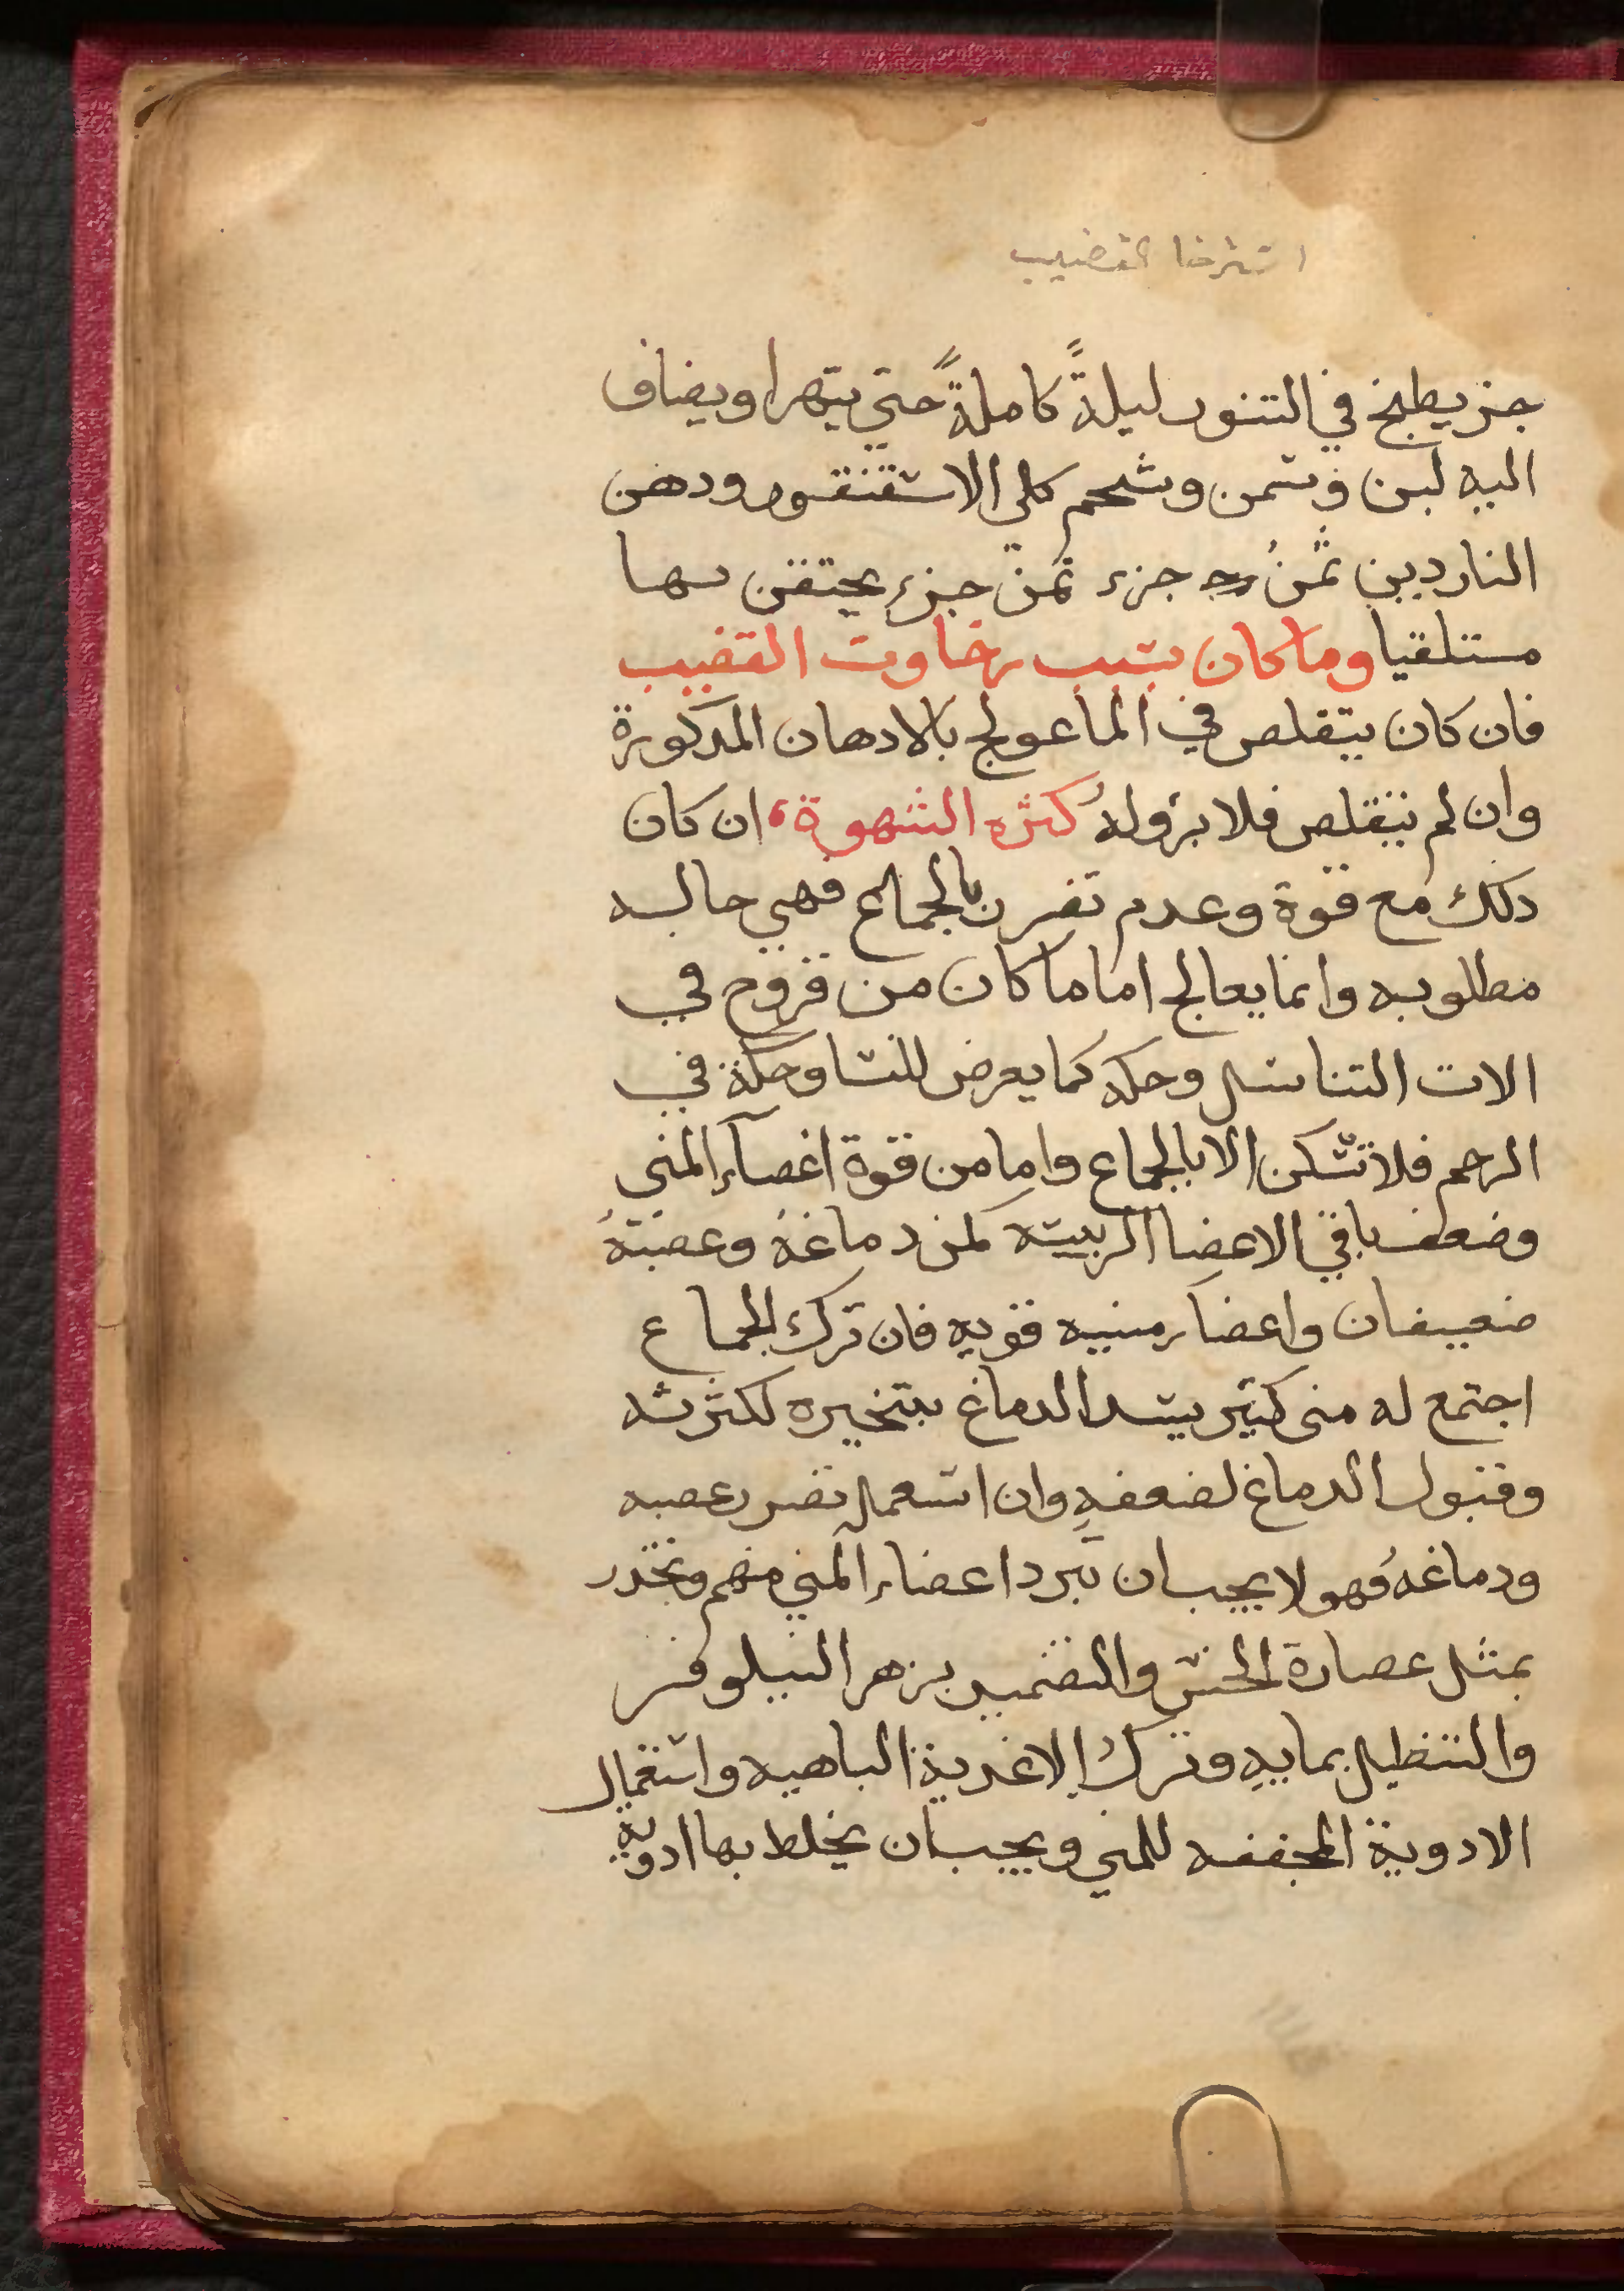 استرخا القضيب
جز يطبخ في التنور ليلةً كاملةً حتي يتهرا ويضاف
اليه لبن وسمن وشحم كلي الاسقنقور ودهن
الناردين ثمنُ جزء ثمن جزء يحتقن بها
مستلقيا وما كان بسبب رخاوت القضيب
فان كان يتقلص في الما عولج بالادهان المدكورة
وان لم يتقلص فلا برؤلهُ كثره الشهوة ان كان
دلك مع قوة وعدم تضرر بالجماع فهي حاله
مطلوبه وانما يعالج اما ما كان من قروح في
الات التناسل وحكه كما يعرض للنسا وحكة في
الرحم فلا تسكن الا بالجماع واما من قوة اغصآء المني
وضعف باقي الاعضا الرييسه كمن دماغهُ وعصبهُ
ضعيفان واعضاء منيه قويه فان ترك الجماع
اجتمع له منى كثير يسد الدماغ بتبخيره لكثرته
وقبول الدماغ لضعفهِ وان استعمل تضرر عصبه
ودماغهُ فهولا يجب ان تبرد اعضاء المني منهم وتخدر
بمثل عصارة الخس والتضميد بزهر النيلوفر
والتنطيل بمايهِ وترك الاغدية الباهيه واستعمال
الادوية المجففه للمني ويجب ان يخلط بها ادوية